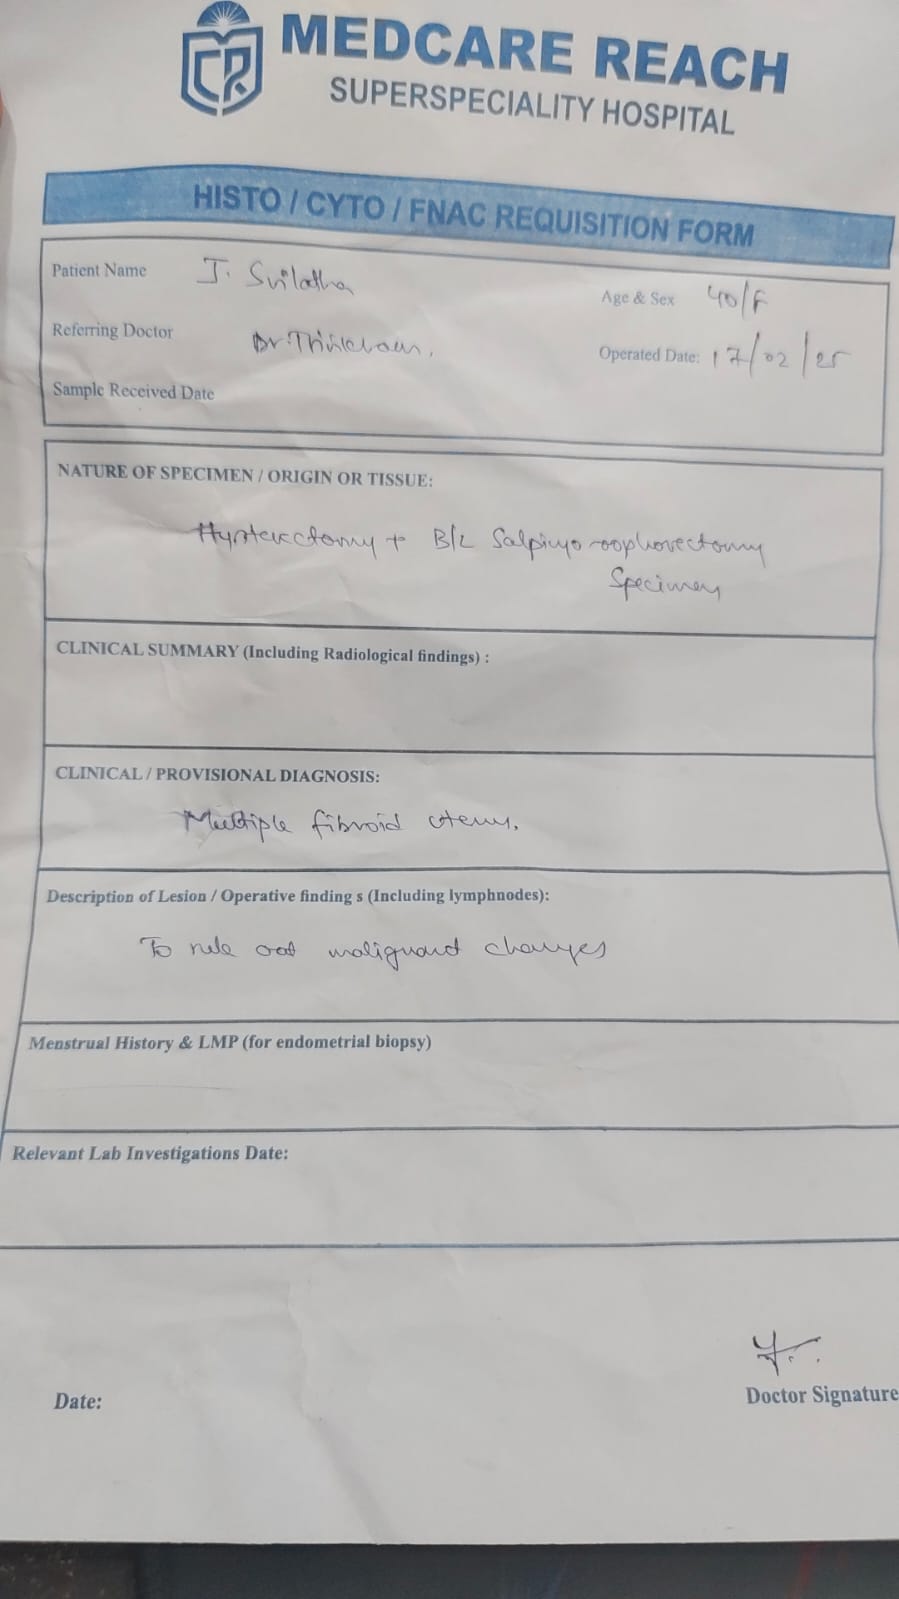 CR
MEDCARE REACH
SUPERSPECIALITY HOSPITAL
HISTO / CYTO / FNAC REQUISITION FORM
Patient Name J. Srilatha
Age & Sex 40/F
Referring Doctor Dr.
Operated Date: 17/02/25
Sample Received Date
NATURE OF SPECIMEN / ORIGIN OR TISSUE:
Hysterectomy + B/L Salpingo-oophorectomy
Specimen
CLINICAL SUMMARY (Including Radiological findings) :
CLINICAL / PROVISIONAL DIAGNOSIS:
Multiple fibroid uterus.
Description of Lesion / Operative finding s (Including lymphnodes):
To rule out malignant changes
Menstrual History & LMP (for endometrial biopsy)
Relevant Lab Investigations Date:
Date:
Doctor Signature